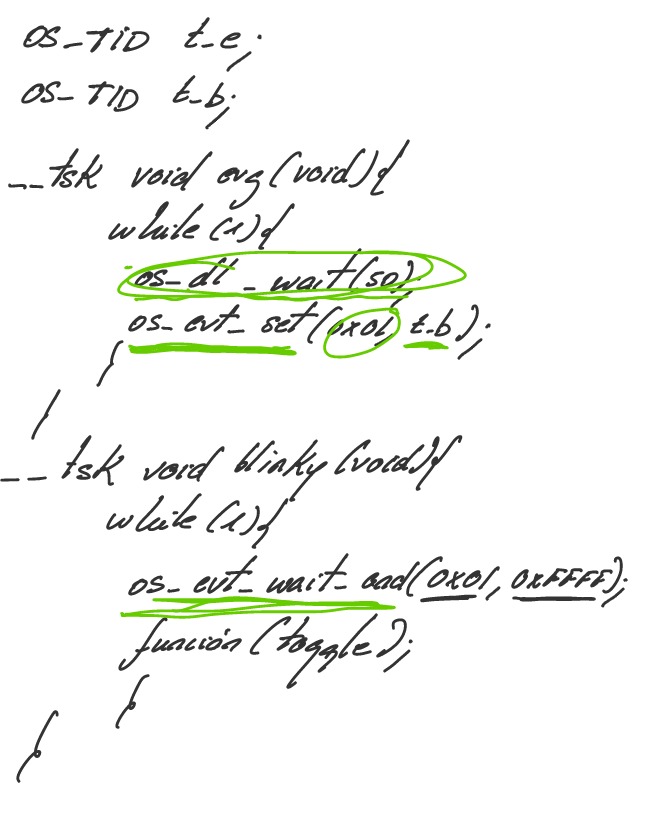 OS_TID t_e;
OS_TID t_b;
__tsk void evg(void){
while(1){
os_dl_wait(50);
os_evt_set(0x01, t_b);
}
}
__tsk void blinky(void){
while(1){
os_evt_wait_and(0x01, 0xFFFF);
función(toggle);
}
}